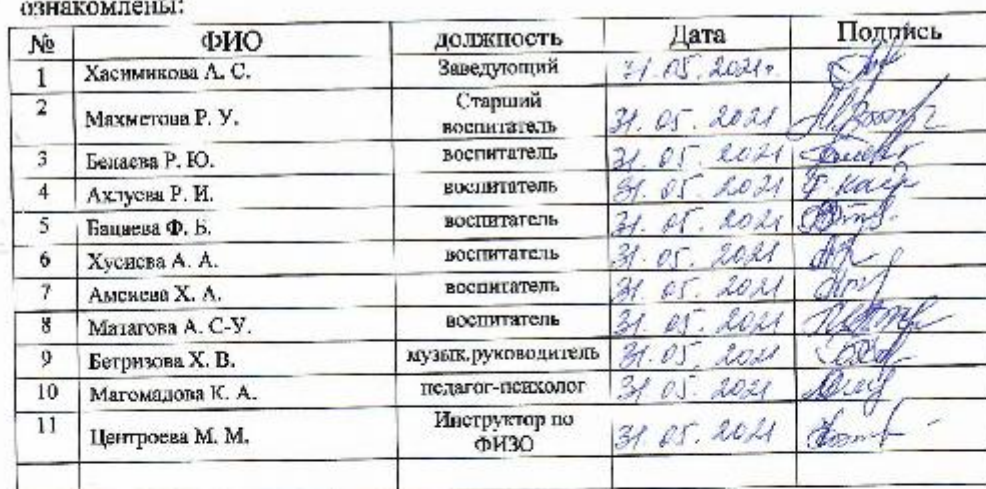 ознакомлены:
№ ФИО должность Дата Подпись
1 Хасимикова А. С. Заведующий 31.05.2021г.
2 Махметова Р. У. Старший воспитатель 31.05.2021
3 Р. Ю. воспитатель 31.05.2021
4 Ахлуева Р. И. воспитатель 31.05.2021
5 Бацаева Ф. Б. воспитатель 31.05.2021
6 Хусиева А. А. воспитатель 31.05.2021
7 Х. А. воспитатель 31.05.2021
8 Матагова А. С-У. воспитатель 31.05.2021
9 Бетризова Х. В. музык.руководитель 31.05.2021
10 Магомадова К. А. педагог-психолог 31.05.2021
11 Центроева М. М. Инструктор по ФИЗО 31.05.2021